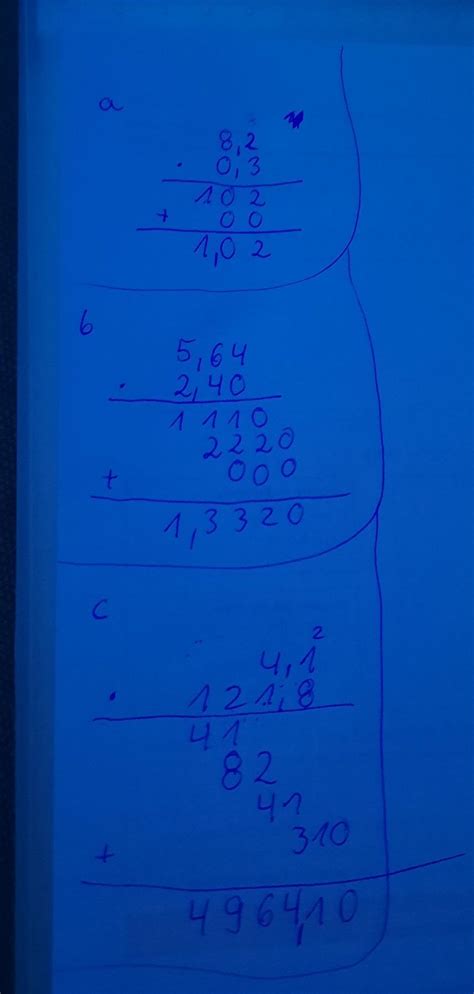 a
8,2
· 0,3
102
+ 00
1,02
b
5,64
· 2,40
1110
2220
+ 000
1,3320
c
2
4,1
· 121,8
41
82
41
310
+
4964,10